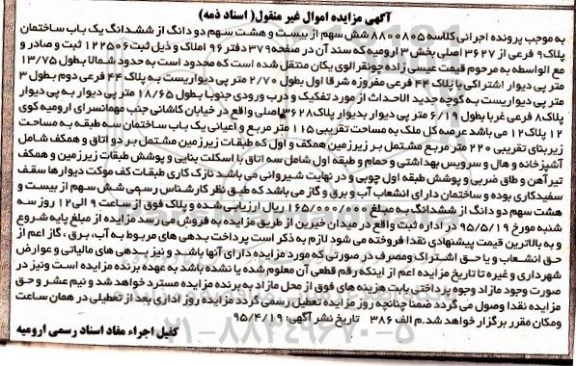 آگهی مزایده اموال غیر منقول( اسناد ذمه)
به موجب پرونده اجرائی کلاسه ۸۸۰۰۸۰۵ شش سهم از بیست و هشت سهم دو دانگ از ششدانگ یک باب ساختمان
پلاک ۹ فرعی از ۳۶۲۷ اصلی بخش ۳ ارومیه که سند آن در صفحه ۳۷۹ دفتر ۹۶ املاک و ذیل ثبت ۱۲۲۵۰۶ ثبت و صادر و
مع الواسطه به مرحوم قیمت عیسی زاده جونقرالوی یکان منتقل شده است که محدود است به حدود شمالا بطول ۱۳/۷۵
متر پی دیوار اشتراکی با پلاک ۴۴ فرعی مفروزه شرقا اول بطول ۲/۷۰ متر پی دیواریست به پلاک ۴۴ فرعی دوم بطول ۳
متر پی دیواریست به کوچه جدید الاحداث از مورد تفکیک و درب ورودی جنوبا بطول ۱۸/۶۵ متر پی دیوار به پی دیوار
پلاک ۸ فرعی غربا بطول ۶/۱۹ متر پی دیوار بدیوار پلاک ۳۶۲۸ اصلی واقع در خیابان کاشانی جنب مهمانسرای ارومیه کوی
۱۲ پلاک ۱۲ می باشد عرصه کل ملک به مساحت تقریبی ۱۱۵ متر مربع و اعیانی یک باب ساختمان سه طبقه به مساحت
زیربنای تقریبی ۲۲۰ متر مربع مشتمل بر زیرزمین همکف و اول که طبقات زیرزمین مشتمل بر دو اتاق و همکف شامل
آشپزخانه و هال و سرویس بهداشتی و حمام و طبقه اول شامل سه اتاق با اسکلت بنایی و پوشش طبقات زیرزمین و همکف
تیرآهن و طاق ضربی و پوشش طبقه اول چوبی و در نهایت شیروانی می باشد نازک کاری طبقات کف موکت دیوارها سقف
سفیدکاری بوده و ساختمان دارای انشعاب آب و برق و گاز می باشد که طبق نظر کارشناس رسمی شش سهم از بیست و
هشت سهم دو دانگ از ششدانگ به مبلغ ۱۶۵/۰۰۰/۰۰۰ ریال ارزیابی شده و پلاک فوق از ساعت ۹ الی ۱۲ روز سه
شنبه مورخ ۹۵/۵/۱۹ در اداره ثبت واقع در میدان خیرین از طریق مزایده به فروش می رسد مزایده از مبلغ پایه شروع
و به بالاترین قیمت پیشنهادی نقدا فروخته می شود لازم به ذکر است پرداخت بدهی های مربوط به آب، برق ، گاز اعم از
حق انشعاب و یا حق اشتراک و مصرف در صورتی که مورد مزایده دارای آنها باشد و نیز بدهی های مالیاتی و عوارض
شهرداری و غیره تا تاریخ مزایده اعم از اینکه رقم قطعی آن معلوم شده یا نشده باشد به عهده برنده مزایده است ونیز در
صورت وجود مازاد وجوه پرداختی بابت هزینه های فوق از محل مازاد به برنده مزایده مسترد خواهد شد و نیم عشر و حق
مزایده نقدا وصول می گردد ضمنا چنانچه روز مزایده تعطیل رسمی گردد مزایده روز اداری بعد از تعطیلی در همان ساعت
ومکان مقرر برگزار خواهد شد. م الف ۳۸۶ تاریخ نشر آگهی: ۹۵/۴/۱۹
کفیل اجراء مفاد اسناد رسمی ارومیه
۰۲۱-۸۸۳۴۹۶۷۰-۵